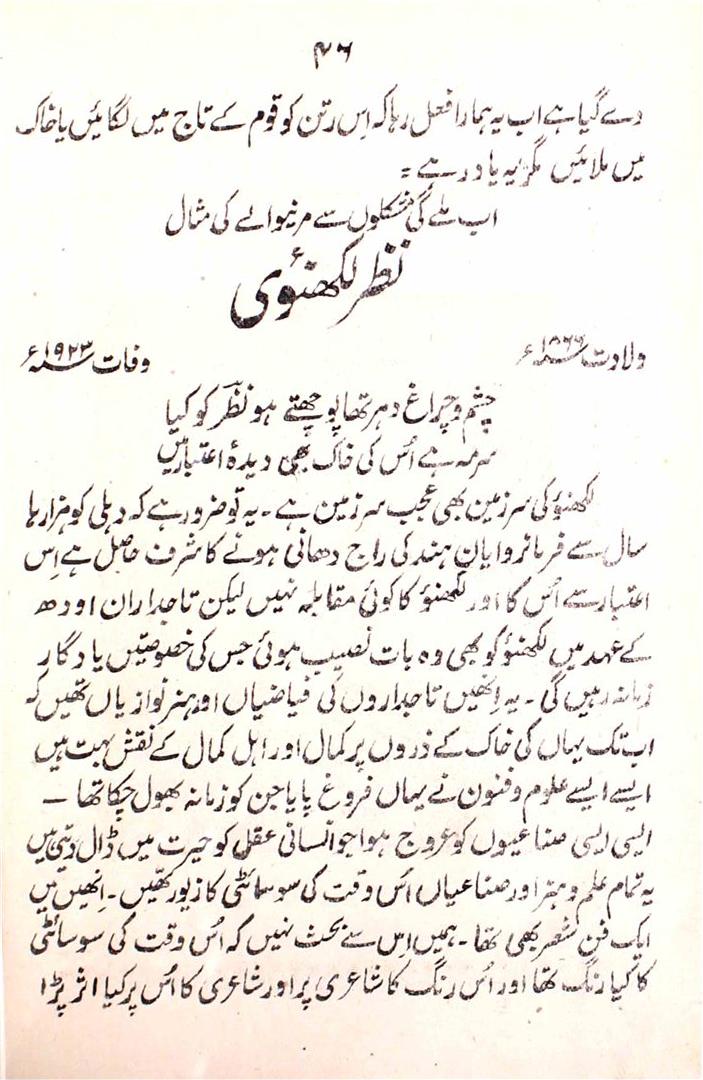 ۴۶
دے گیا ہے اب یہ ہمارا فعل رہا کہ اِس رتن کو قوم کے تاج میں لگائیں یا خاک
میں ملائیں مگر یہ یاد رہے =
اب ملے گی مشکلوں سے مرنیوالے کی مثال
نظر لکھنؤی
ولادت ۱۸۶۶ء
وفات ۱۹۲۳ء
چشم و چراغ دہر تھا پوچھتے ہو نظر کو کیا
سرمہ ہے اُس کی خاک بھی دیدۂ اعتبار میں
لکھنؤ کی سرزمین بھی عجب سرزمین ہے ۔ یہ تو ضرور ہے کہ دہلی کو ہزارہا
سال سے فرمانروایانِ ہند کی راج دھانی ہونے کا شرف حاصل ہے اِس
اعتبار سے اُس کا اور لکھنؤ کا کوئی مقابلہ نہیں لیکن تاجداران اودھ
کے عہد میں لکھنؤ کو بھی وہ بات نصیب ہوئی جس کی خصوصیّتیں یادگار
زمانہ رہیں گی ۔ یہ اِنھیں تاجداروں کی فیاضیاں اور ہنر نوازیاں تھیں کہ
اب تک یہاں کی خاک کے ذروں پر کمال اور اہل کمال کے نقش بہت ہیں
ایسے ایسے علوم و فنون نے یہاں فروغ پایا جن کو زمانہ بھول چکا تھا ۔
ایسی ایسی صناعیوں کو عروج ہوا جو انسانی عقل کو حیرت میں ڈال دیتی ہیں
یہ تمام علم و ہنر اور صناعیاں اُس وقت کی سوسائٹی کا زیور تھیں ۔ اِنھیں میں
ایک فن شعر بھی تھا ۔ ہمیں اِس سے بحث نہیں کہ اُس وقت کی سوسائٹی
کا کیا رنگ تھا اور اُس رنگ کا شاعری پر اور شاعری کا اُس پر کیا اثر پڑا